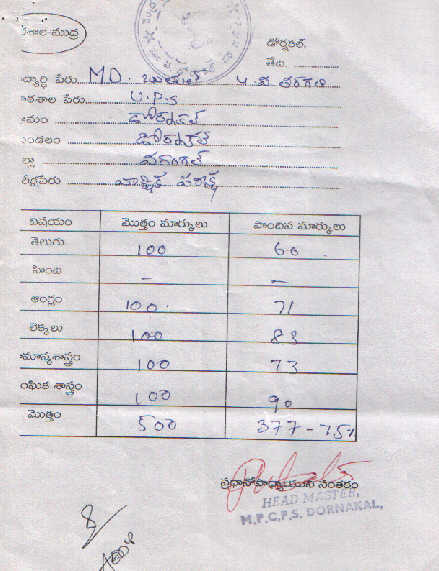 శాల ముద్ర
డోర్నకల్,
తేది.
ద్యార్థి పేరు MD.
ఠశాల పేరు U.P.S
ామం డోర్నకల్
ండలం డోర్నకల్
ల్లా వరంగల్
రీక్షపేరు వార్షిక పరీక్ష
విషయం మొత్తం మార్కులు పొందిన మార్కులు
తెలుగు 100 60
హింది - -
ఆంగ్లం 100 71
లెక్కలు 100 83
ామాన్యశాస్త్రం 100 73
ంఘిక శాస్త్రం 100 90
మొత్తం 500 377-75%
ప్రధానోపాధ్యాయుని సంతకం
HEAD MASTER,
M.P.C.P.S. DORNAKAL,